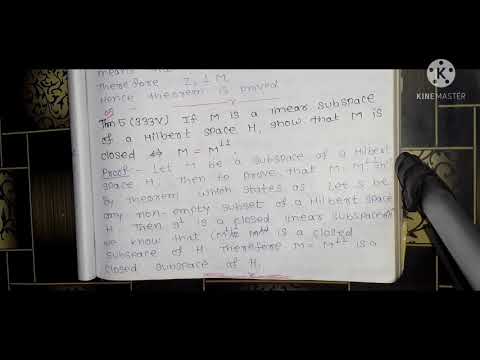 means
therefore Z1 ⊥ M
Hence theorem is proved
Thm 5 (333V) If M is a linear subspace
of a Hilbert space H, show that M is
closed ⇔ M = M⊥⊥.
Proof:- Let M be a subspace of a Hilbert
space H, then to prove that M = M⊥⊥
by theorem which states as Let S be
any non-empty subset of a Hilbert space
H. Then S⊥ is a closed linear subspace
we know that (M⊥)⊥ = M⊥⊥ is a closed
subspace of H therefore M = M⊥⊥ is a
closed subspace of H.
K
KINEMASTER